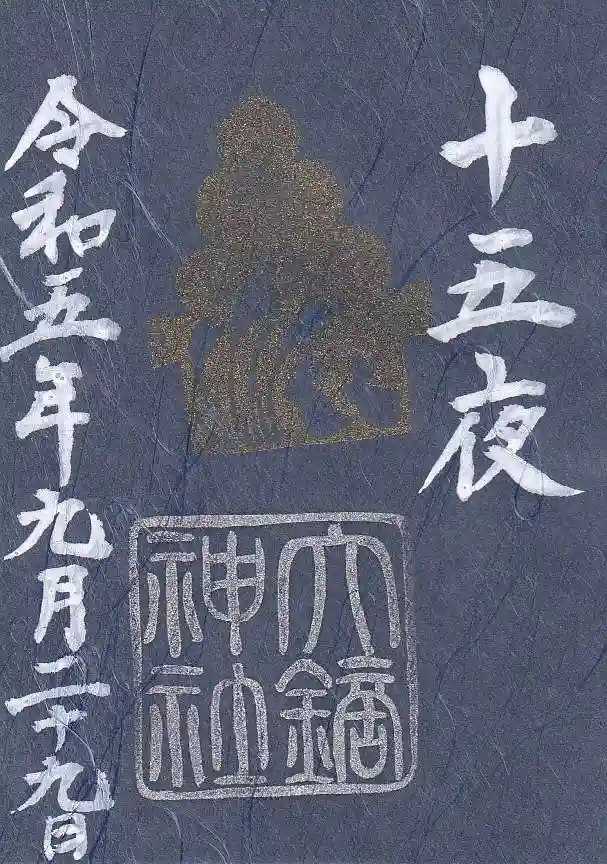 十五夜
六鏑
神社
令和五年九月二十九日